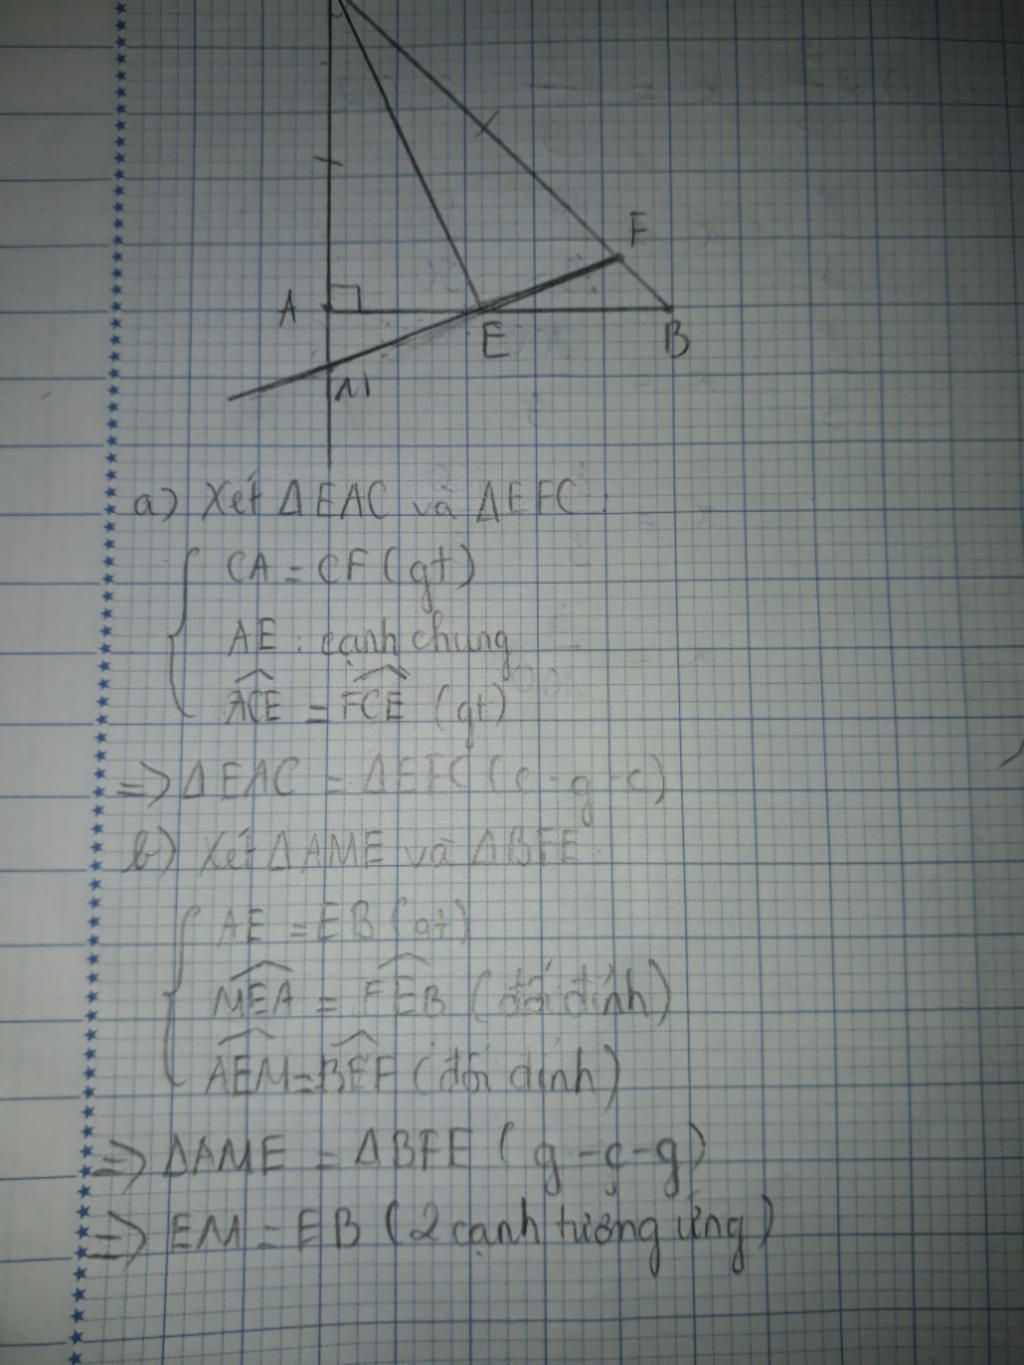 F
A
E
B
M
a) Xét ΔEAC và ΔEFC:
CA = CF (gt)
AE : cạnh chung
ACE = FCE (gt)
=> ΔEAC = ΔEFC (c-g-c)
b) Xét ΔAME và ΔBFE:
AE = EB (gt)
MEA = FEB (đối đỉnh)
AEM = BEF (đối đỉnh)
=> ΔAME = ΔBFE (g-c-g)
=> EM = EB (2 cạnh tương ứng)